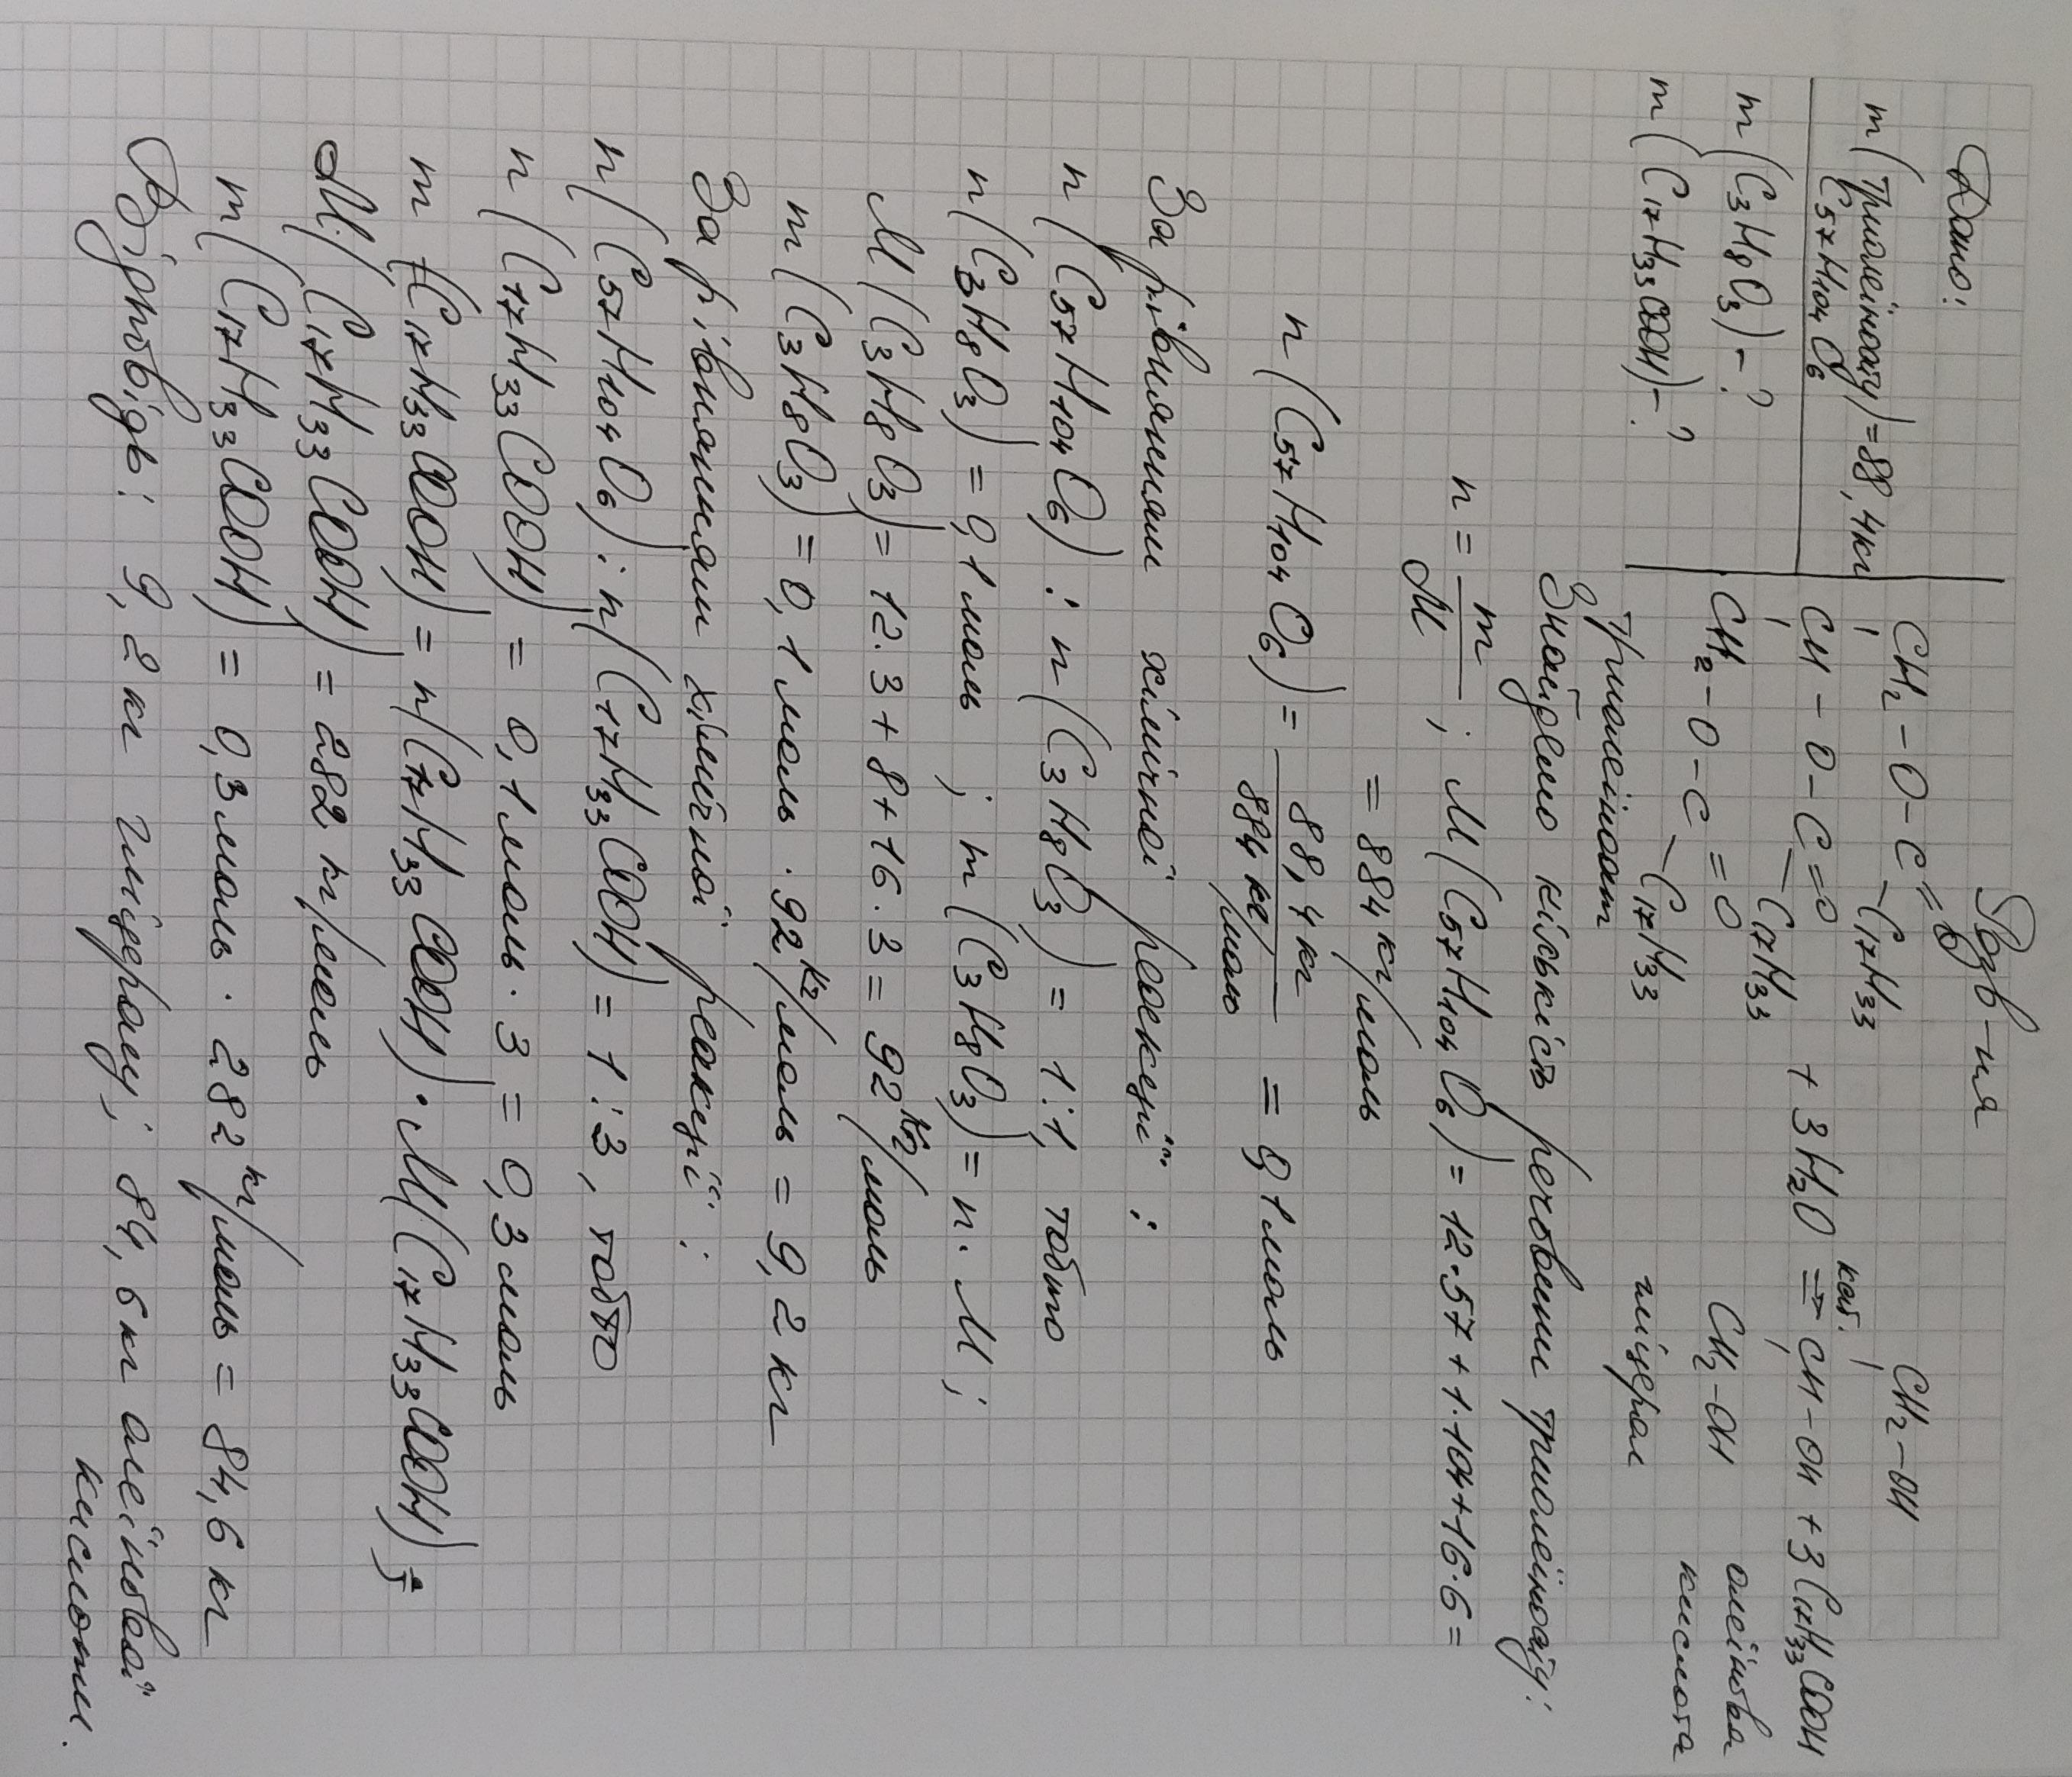 Дано:
m(триолеіноату)=88,4кг
C57H104O6
m(C3H8O3)-?
m(C17H33COOH)-?
Розв-ня
CH2-O-C=O
-C17H33
CH-O-C=O
-C17H33
CH2-O-C=O
-C17H33
триолеіноат
+ 3H2O
кат.
⇒
CH2-OH
CH-OH + 3C17H33COOH
CH2-OH
гліцерол
олеїнова
кислота
Знайдемо кількість речовини триолеіноату:
n = m/M ; M(C57H104O6) = 12·57 + 1·104 + 16·6 =
= 884 кг/моль
n(C57H104O6) = 88,4 кг / 884 кг/моль = 0,1 моль
За рівнянням хімічної реакції:
n(C57H104O6) : n(C3H8O3) = 1:1, тобто
n(C3H8O3) = 0,1 моль ; m(C3H8O3) = n·M ;
M(C3H8O3) = 12·3 + 8 + 16·3 = 92 кг/моль
m(C3H8O3) = 0,1 моль · 92 кг/моль = 9,2 кг
За рівнянням хімічної реакції:
n(C57H104O6) : n(C17H33COOH) = 1:3, тобто
n(C17H33COOH) = 0,1 моль · 3 = 0,3 моль
m(C17H33COOH) = n(C17H33COOH) · M(C17H33COOH) ;
M(C17H33COOH) = 282 кг/моль
m(C17H33COOH) = 0,3 моль · 282 кг/моль = 84,6 кг
Відповідь: 9,2 кг гліцеролу; 84,6 кг олеїнової
кислоти.